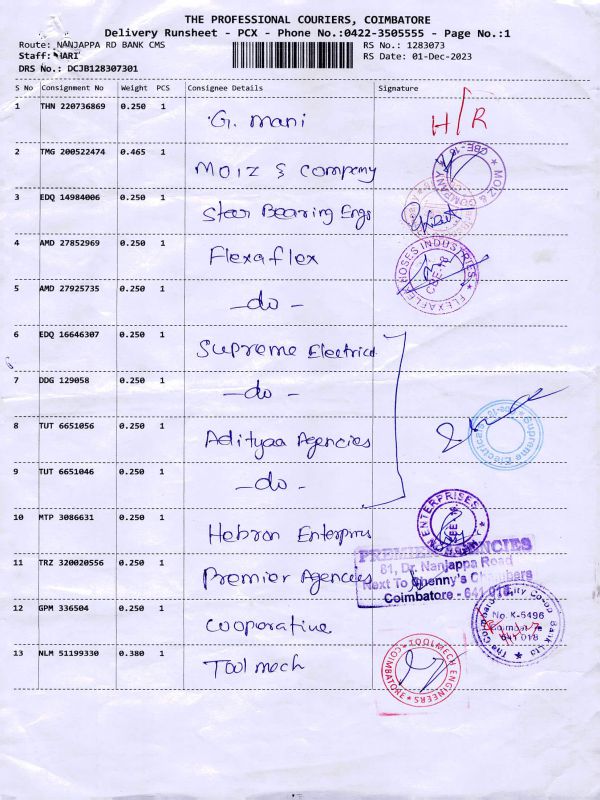 THE PROFESSIONAL COURIERS, COIMBATORE
Delivery Runsheet - PCX - Phone No.:0422-3505555 - Page No.:1
Route: NANJAPPA RD BANK CMS
RS No.: 1283073
Staff: HARI
RS Date: 01-Dec-2023
DRS No.: DCJB128307301
S No Consignment No Weight PCS Consignee Details Signature
1 THN 220736869 0.250 1 G. Mani H/R
2 TMG 200522474 0.465 1 Moiz & Company
MOIZ & COMPANY ★ CBE-18 ★
3 EDQ 14984006 0.250 1 Star Bearing Engs
4 AMD 27852969 0.250 1 Flexaflex
FLEXAFLEX HOSES INDUSTRIES ★ CBE-18
5 AMD 27925735 0.250 1 -do-
6 EDQ 16646307 0.250 1 Supreme Electrical
7 DDG 129058 0.250 1 -do-
8 TUT 6651056 0.250 1 Adityaa Agencies
Supreme Electricals
9 TUT 6651046 0.250 1 -do-
10 MTP 3086631 0.250 1 Hebron Enterprises
HEBRON ENTERPRISES ★
11 TRZ 320020556 0.250 1 Premier Agencies
PREMIER AGENCIES
81, Dr. Nanjappa Road
Next To Chenny's Chambers
Coimbatore - 641 018.
12 GPM 336504 0.250 1 Cooperative
No. K-5496
Coimbatore
641 018
13 NLM 51199330 0.380 1 Toolmech
★ TOOLMECH ENGINEERS ★ COIMBATORE